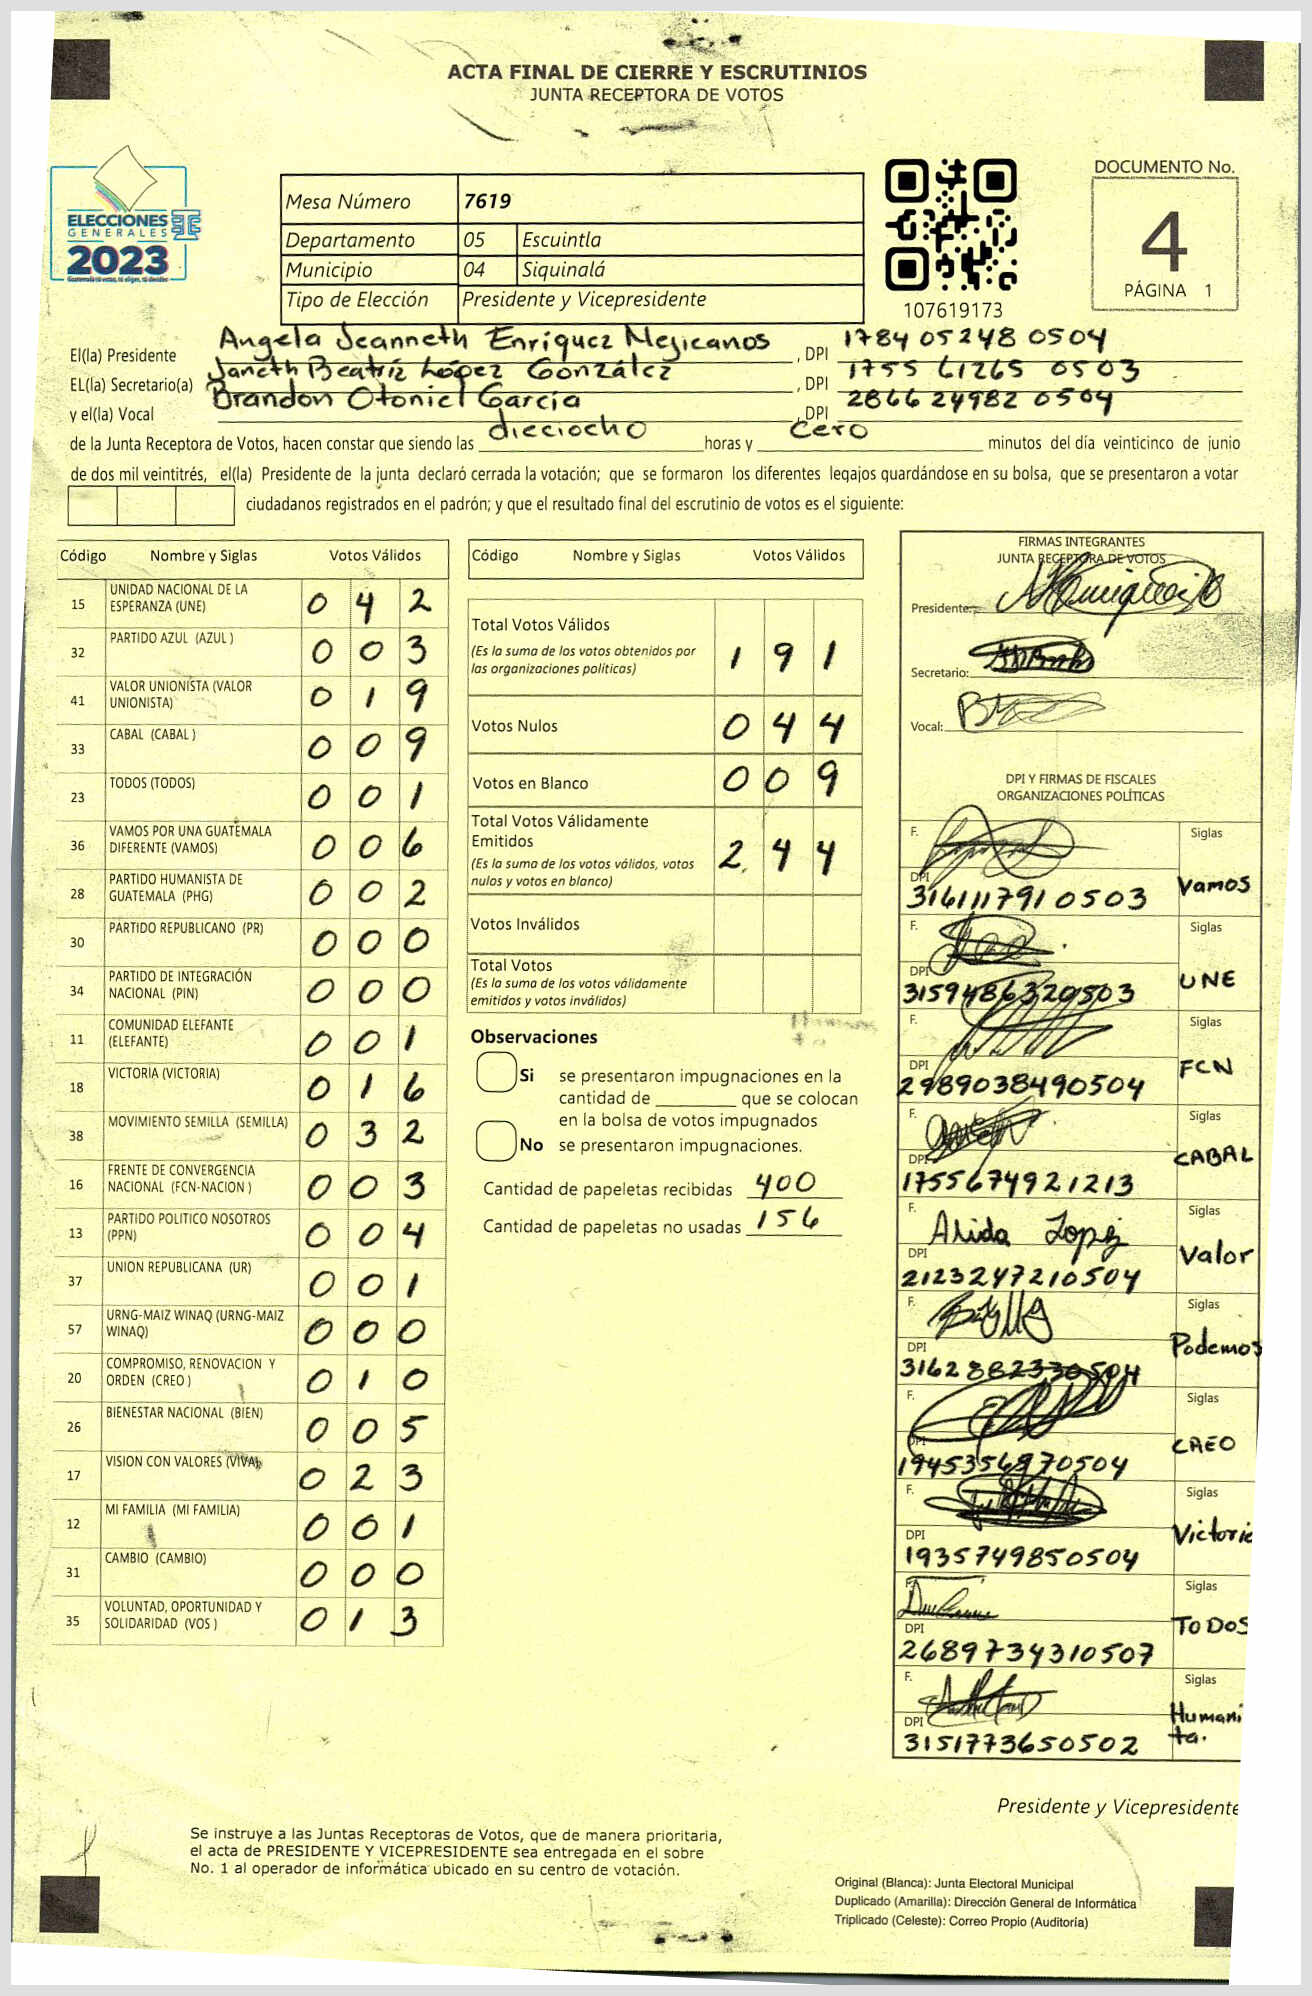 ACTA FINAL DE CIERRE Y ESCRUTINIOS
JUNTA RECEPTORA DE VOTOS
ELECCIONES
GENERALES
2023
Mesa Número 7619
Departamento 05 Escuintla
Municipio 04 Siquinalá
Tipo de Elección Presidente y Vicepresidente
107619173
DOCUMENTO No.
4
PÁGINA 1
El(la) Presidente Angela Jeanneth Enríquez Mejicanos , DPI 1784 05248 0504
EL(la) Secretario(a) Janeth Beatríz López González , DPI 1755 61265 0503
y el(la) Vocal Brandon Otoniel García , DPI 2866 24982 0504
de la Junta Receptora de Votos, hacen constar que siendo las dieciocho horas y cero minutos del día veinticinco de junio
de dos mil veintitrés, el(la) Presidente de la junta declaró cerrada la votación; que se formaron los diferentes legajos guardándose en su bolsa, que se presentaron a votar
ciudadanos registrados en el padrón; y que el resultado final del escrutinio de votos es el siguiente:
Código Nombre y Siglas Votos Válidos
15 UNIDAD NACIONAL DE LA ESPERANZA (UNE) 0 4 2
32 PARTIDO AZUL (AZUL ) 0 0 3
41 VALOR UNIONISTA (VALOR UNIONISTA) 0 1 9
33 CABAL (CABAL ) 0 0 9
23 TODOS (TODOS) 0 0 1
36 VAMOS POR UNA GUATEMALA DIFERENTE (VAMOS) 0 0 6
28 PARTIDO HUMANISTA DE GUATEMALA (PHG) 0 0 2
30 PARTIDO REPUBLICANO (PR) 0 0 0
34 PARTIDO DE INTEGRACIÓN NACIONAL (PIN) 0 0 0
11 COMUNIDAD ELEFANTE (ELEFANTE) 0 0 1
18 VICTORIA (VICTORIA) 0 1 6
38 MOVIMIENTO SEMILLA (SEMILLA) 0 3 2
16 FRENTE DE CONVERGENCIA NACIONAL (FCN-NACION ) 0 0 3
13 PARTIDO POLITICO NOSOTROS (PPN) 0 0 4
37 UNION REPUBLICANA (UR) 0 0 1
57 URNG-MAIZ WINAQ (URNG-MAIZ WINAQ) 0 0 0
20 COMPROMISO, RENOVACION Y ORDEN (CREO ) 0 1 0
26 BIENESTAR NACIONAL (BIEN) 0 0 5
17 VISION CON VALORES (VIVA) 0 2 3
12 MI FAMILIA (MI FAMILIA) 0 0 1
31 CAMBIO (CAMBIO) 0 0 0
35 VOLUNTAD, OPORTUNIDAD Y SOLIDARIDAD (VOS ) 0 1 3
Código Nombre y Siglas Votos Válidos
Total Votos Válidos 1 9 1
(Es la suma de los votos obtenidos por
las organizaciones políticas)
Votos Nulos 0 4 4
Votos en Blanco 0 0 9
Total Votos Válidamente
Emitidos 2 4 4
(Es la suma de los votos válidos, votos
nulos y votos en blanco)
Votos Inválidos
Total Votos
(Es la suma de los votos válidamente
emitidos y votos inválidos)
Observaciones
Si se presentaron impugnaciones en la
cantidad de ________ que se colocan
en la bolsa de votos impugnados
No se presentaron impugnaciones.
Cantidad de papeletas recibidas 400
Cantidad de papeletas no usadas 156
FIRMAS INTEGRANTES
JUNTA RECEPTORA DE VOTOS
Presidente:
Secretario:
Vocal:
DPI Y FIRMAS DE FISCALES
ORGANIZACIONES POLÍTICAS
F. Siglas
DPI 3161117910503 Vamos
F. Siglas
DPI 3159486320503 UNE
F. Siglas
DPI 2989038490504 FCN
F. Siglas
DPI 1755674921213 CABAL
F. Alida Lopez Siglas
DPI 2123247210504 Valor
F. Siglas
DPI 3162882330504 Podemos
F. Siglas
DPI 1945356970504 CREO
F. Siglas
DPI 1935749850504 Victoria
F. Siglas
DPI 2689734310507 TODOS
F. Siglas
DPI 3151773650502 Humani
ta.
Presidente y Vicepresidente
Se instruye a las Juntas Receptoras de Votos, que de manera prioritaria,
el acta de PRESIDENTE Y VICEPRESIDENTE sea entregada en el sobre
No. 1 al operador de informática ubicado en su centro de votación.
Original (Blanca): Junta Electoral Municipal
Duplicado (Amarilla): Dirección General de Informática
Triplicado (Celeste): Correo Propio (Auditoría)